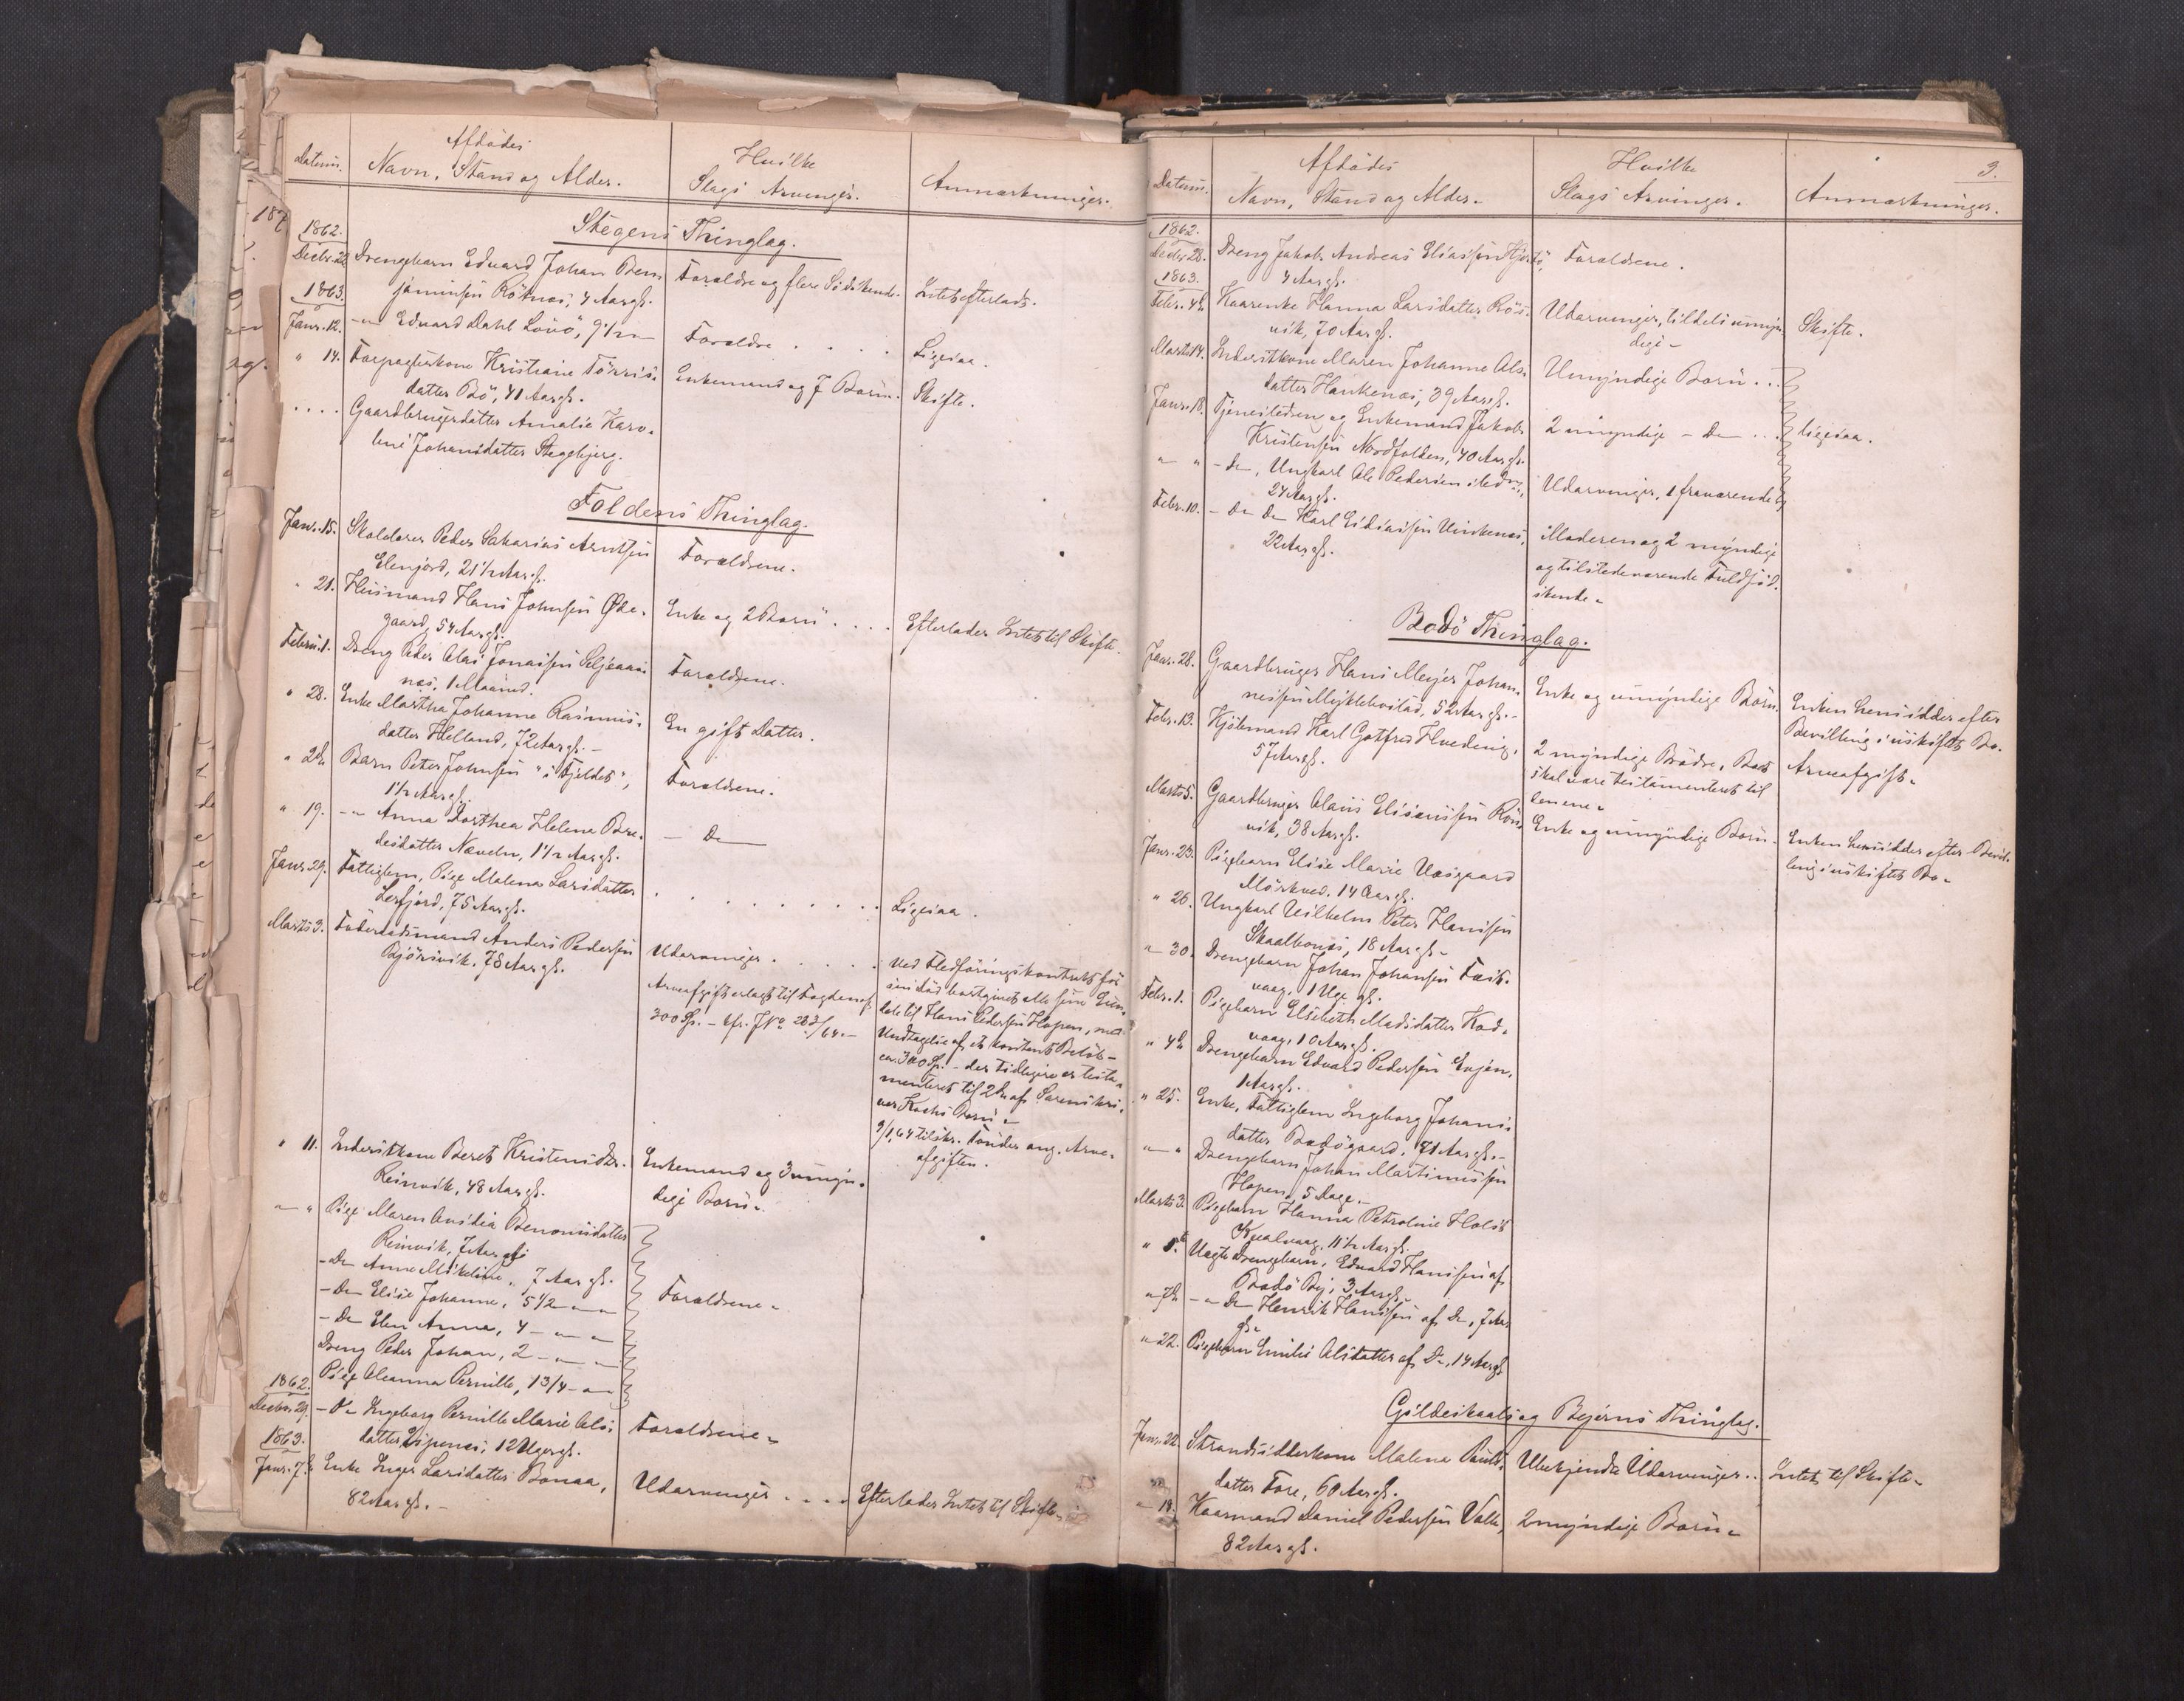 Datum.
Afdödes
Navn, Stand og Alder.
Hvilke
Slags Arvinger.
Anmærkninger.
Stegens Thinglag.
1862.
Decbr. 22
Drengebarn Eduard Johan Ben-
jaminsen Röknæs, 4 Aar gl.
Forældre og flere Södskende.
Intet efterladt.
1863.
Janr. 12.
-"- Eduard Dahl Lövö, 9 1/2 -"-
Forældre . . . .
Ligesaa.
" 14.
Forpagterkone Kristiane Törris-
datter Bö, 41 Aar gl.
Enkemand og 7 Börn.
Skifte.
. . . .
Gaardbrugerdatter Amalie Karo-
line Johansdatter Stegebjerg.
Foldens Thinglag.
Janr. 15.
Skolelærer Peder Sakarias Arntsen
Elenjord, 21 1/2 Aar gl.
Forældrene.
" 21.
Huusmand Hans Johnsen Øde-
gaard, 54 Aar gl.
Enke og 2 Börn . . . .
Efterlader Intet til Skifte.
Februar 1.
Dreng Peder Olai Jonassen
næs, 1 Maaned.
Forældrene.
" 28.
Enke Martha Johanna Rasmus-
datter Helland, 72 Aar gl. -
En gift Datter.
" 24
Barn Peter Johnsen "i Fjeldet",
1 1/2 Aar gl.
Forældrene.
" 19.
-"- Anna Dorthea Helena Bre-
desdatter Næveln, 1 1/2 Aar gl.
- Do
Janr. 29.
Fattiglem, Pige Malena Larsdatter
Lerfjord, 75 Aar gl.
. . . . . . . . .
Ligesaa.
Marts 3.
Föderaadsmand Anders Pedersen
Björsvik, 78 Aar gl.
Udarvinger . . . . .
Arveafgift erlagt til Fogden af
300 Sp. - Cfr. J No 283/64. -
Ved Fledföringskontrakt för
sin död bortgivet alle sine Eien-
dele til Hans Pedersen Hopen, med
Undtagelse af et kontant Belöb -
ca. 300 Sp. - der tidligere er testa-
menteret til 2de af Sorenskri-
ver Kochs Börn -
9/1 64 tilskr. Fonden ang. Arve-
afgiften.
" 11.
Inderstkone Beret Kristensdtr.
Reinvik, 48 Aar gl.
Enkemand og 3 umyn-
dige Börn.
-" "
Pige Maren Ovidia Benonisdatter
Reinvik, 7 Aar gl.
- Do Anne Mikeline, 7 Aar gl.
- Do Elise Johanne, 5 1/2 -"- -"-
- Do Elen Anna, 4 -"- -"-
Dreng Peder Johan, 2 -"- -"-
Pige Oleanna Pernille, 13/4 -"-
Forældrene.
1862.
Decbr. 29.
- Do Ingeborg Pernille Marie Ols-
datter Espenes, 12 Uger gl.
Forældrene.
1863.
Janr. 7.
Enke Inger Larsdatter Bonaa,
82 Aar gl. -
Udarvinger . . . .
Efterlader Intet til Skifte.
3.
Datum.
Afdödes
Navn, Stand og Alder.
Hvilke
Slags Arvinger.
Anmærkninger.
1862.
Decbr. 28.
Dreng Jakob Andreas Eliassen Hjertö,
4 Aar gl.
Forældrene.
1863.
Febr. 4de
Kaarenke Hanna Larsdatter Rös-
vik, 70 Aar gl.
Udarvinger, tildels umyn-
dige -
Skifte.
Marts 14.
Inderstkone Maren Johanne Ols-
datter Hankenæs, 39 Aar gl.
Umyndige Börn . . .
Janr. 18.
Tjenestedreng og Enkemand Jakob
Kristensen Nordfolden, 40 Aar gl.
2 umyndige - Do . . .
Ligesaa.
" "
- Do, Ungkarl Ole Pedersen
24 Aar gl.
Udarvinger, 1 fraværende
Febr. 10.
- Do Do Karl Vinkenæs,
22 Aar gl.
Moderen og 2 myndige
og tilstedeværende Fuldsöd-
skende -
Bodö Thinglag.
Janr. 28.
Gaardbruger Hans Meyer Johan-
nessen Myklebostad, 52 Aar gl. -
Enke og umyndige Börn.
Enken hensidder efter
Bevilling i uskiftet Bo.
Febr. 13.
Kjöbmand Karl Gotfred Hveding,
57 Aar gl.
2 myndige Brödre, Boet
skal være testamenteret til
den ene -
Arveafgift -
Marts 5.
Gaardbruger Olaus Elisæussen Rön-
vik, 38 Aar gl.
Enke og umyndige Börn.
Enken hensidder efter Bevil-
ling i uskiftet Bo -
Janr. 23.
Pigebarn Elise Marie Vasgaard
Mörkved, 14 Aar gl.
" 26.
Ungkarl Vilhelm Peter Hansen
Skaalbones, 18 Aar gl. -
" 30.
Drengebarn Johan Johansen Fest-
vaag, 1 Uge gl.
Febr. 1.
Pigebarn Elisbeth Madsdatter Kod-
vaag, 10 Aar gl.
" 4de
Drengebarn Edvard Pedersen Evjen,
1 Aar gl.
" 25.
Enke, Fattiglem Ingeborg Johans-
datter Bodögaard, 71 Aar gl. -
-" "
Drengebarn Johan Martinussen
Hopen, 5 Dage. -
Marts 3.
Pigebarn Hanna Petroline Holst
Kvalvaag, 11 1/2 Aar gl.
" 5.
Uægte Drengebarn, Edvard Hansen af
Bodö By, 3 Aar gl.
" 7de
-"- Do Henrik Hansen af Do, 7 Aar
gl.
" 22.
Pigebarn Emilie Olsdatter af Do, 14 Aar gl.
Gildeskaals og Bejerns Thinglag.
Janr. 22.
Strandsidderkone Malena Pauls-
datter Fore, 60 Aar gl.
Ubekjendte Udarvinger . .
Intet til Skifte -
" 19.
Kaarmand Daniel Pedersen Valle,
82 Aar gl.
2 myndige Börn -